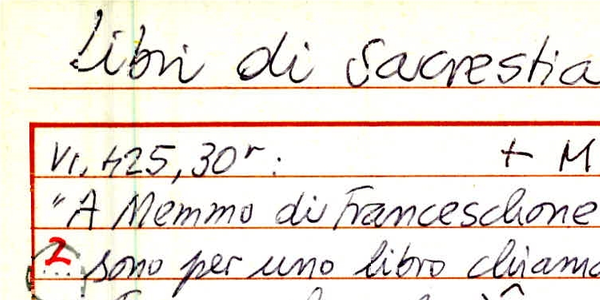 Libri di Sacrestia
VI, 425, 30r: + M
"A Memmo di Franceschone
2 sono per uno libro chiama